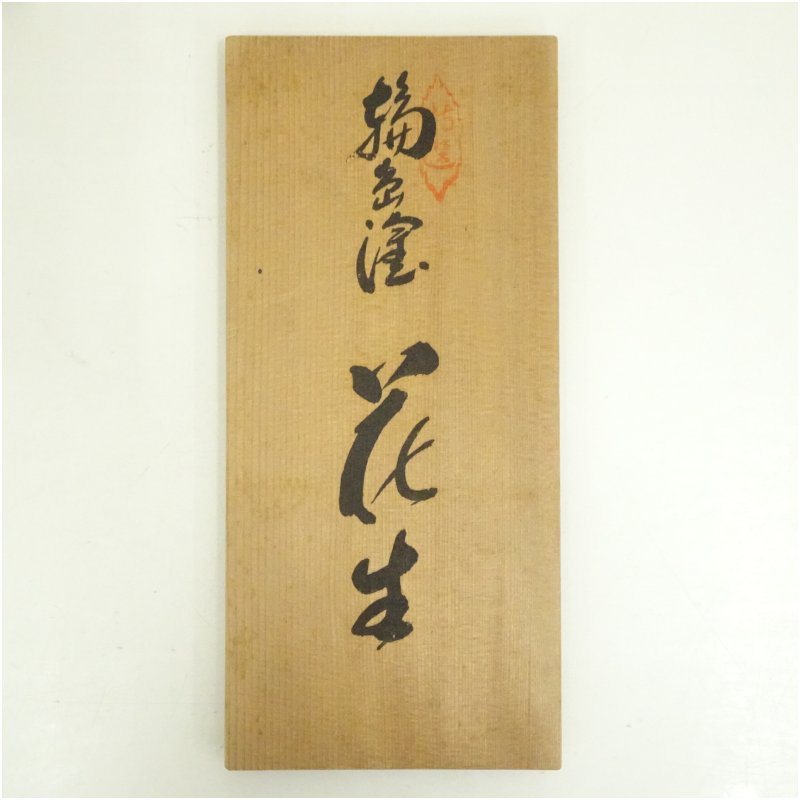 輪島塗 花生